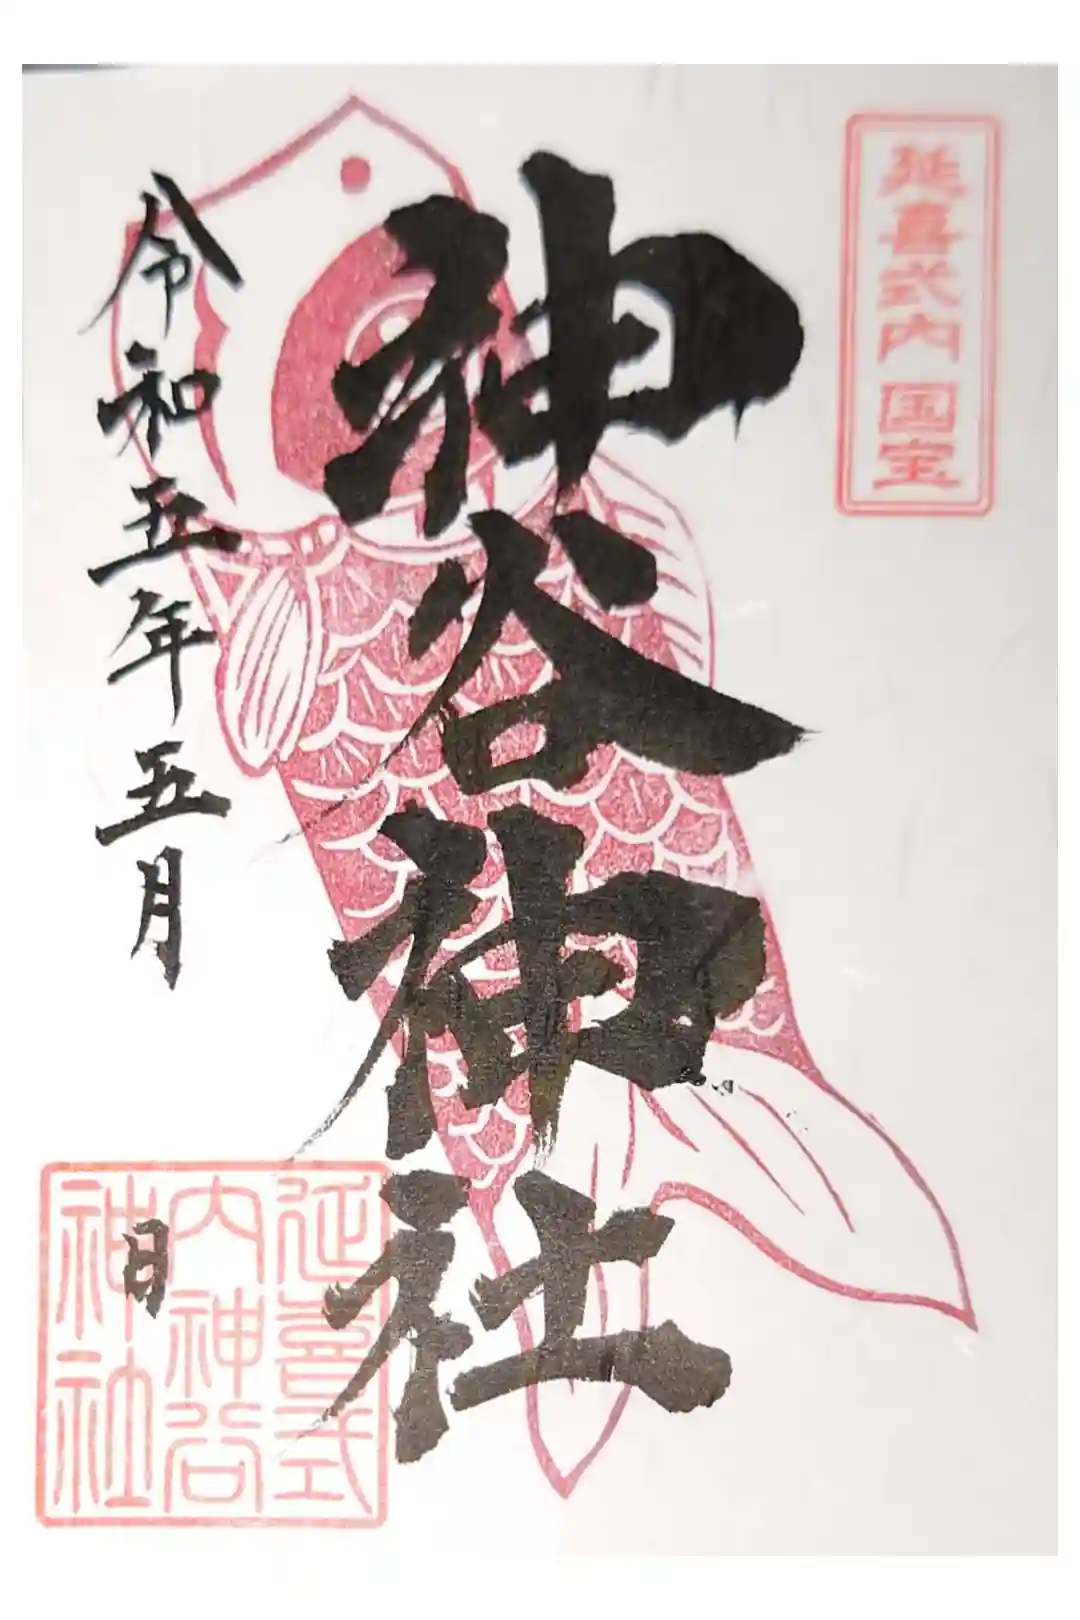 延喜式内 国宝
神谷神社
令和五年五月 日
延喜式
内神谷
神社